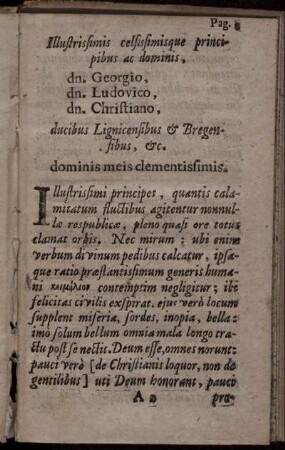 Pag. 3
Illustrissimis celsissimisque princi-
pibus ac dominis,
dn. Georgio,
dn. Ludovico,
dn. Christiano,
ducibus Lignicensibus & Bregen-
sibus, &c.
dominis meis clementissimis.
Illustrissimi principes, quantis cala-
mitatum fluctibus agitentur nonnul-
læ respublicæ, pleno quasi ore totus
clamat orbis. Nec mirum: ubi enim
verbum divinum pedibus calcatur, ipsa-
que ratio præstantissimum generis huma-
ni κειμήλιον contemptim negligitur; ibi
felicitas civilis exspirat. ejus verò locum
supplent miseriæ, sordes, inopia, bella:
imò solum bellum omnia mala longo tra-
ctu post se nectit. Deum esse, omnes norunt:
pauci verò [de Christianis loquor, non de
gentilibus] uti Deum honorant, pauci
A 2 pro-